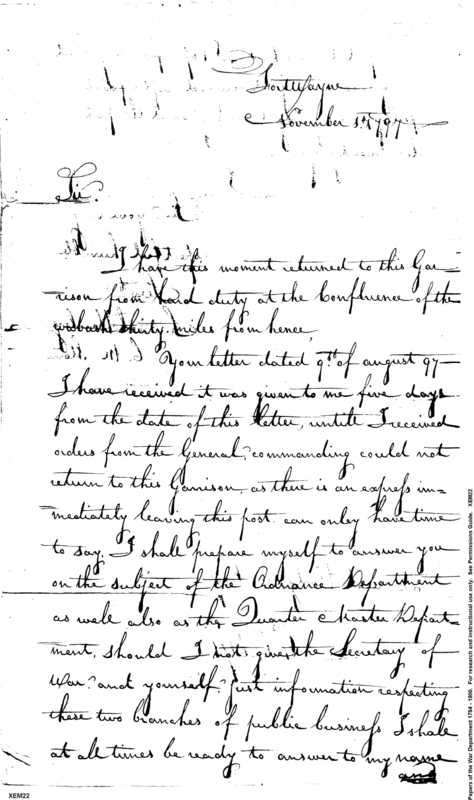 Fort Wayne
November 1st 1797
Sir.
I have this moment returned to this Gar=
rison from hard duty at the Confluence of the
wabash thirty miles from hence,
Your letter dated 9th of august 97
I have received it was given to me five days
from the date of this letter, untile I received
orders from the General, commanding could not
return to this Garrison, as there is an express im=
=mediately leaving this post can onley have time
to say, I shale prepare myself to answer you
on the subject of the Ordnance Department
as wele also as the Quarter Master Depart=
ment, should I not give the Secretary of
War, and yourself, Just information respecting
these two branches of public business I shale
at ale times be ready to answer to my name
and
XEM22
Papers of the War Department 1784 - 1800. For research and instructional use only. See Permissions Guide. XEM22